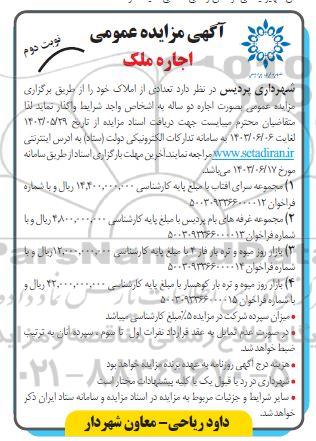 آگهی مزایده عمومی
نوبت دوم
اجاره ملک
شهرداری پردیس در نظر دارد تعدادی از املاک خود را از طریق برگزاری
مزایده عمومی بصورت اجاره دو ساله به اشخاص واجد شرایط واگذار نماید لذا
متقاضیان محترم میبایست جهت دریافت اسناد مزایده از تاریخ ۱۴۰۳/۰۵/۲۹
لغایت ۱۴۰۳/۰۶/۰۶ به سامانه تدارکات الکترونیکی دولت (ستاد) به آدرس اینترنتی
www.setadiran.ir مراجعه نمایند. آخرین مهلت بارگزاری اسناد از طریق سامانه
مورخ ۱۴۰۳/۰۶/۱۷ می باشد.
۱) مجموعه سرای آفتاب با مبلغ پایه کارشناسی ۱۴,۴۰۰,۰۰۰,۰۰۰ ریال و با شماره
فراخوان ۵۰۰۳۰۹۳۳۶۶۰۰۰۰۱۲
۲) مجموعه غرفه های بام پردیس با مبلغ پایه کارشناسی ۴,۸۰۰,۰۰۰,۰۰۰ ریال و با
شماره فراخوان ۵۰۰۳۰۹۳۳۶۶۰۰۰۰۱۳
۳) بازار روز میوه و تره بار فاز ۴ با مبلغ پایه کارشناسی ۱۲,۰۰۰,۰۰۰,۰۰۰ ریال و با
شماره فراخوان ۵۰۰۳۰۹۳۳۶۶۰۰۰۰۱۴
۴) بازار روز میوه و تره بار کوهسار با مبلغ پایه کارشناسی ۴۲,۰۰۰,۰۰۰,۰۰۰ ریال و
با شماره فراخوان ۵۰۰۳۰۹۳۳۶۶۰۰۰۰۱۵
• میزان سپرده شرکت در مزایده ۵٪ مبلغ کارشناسی میباشد
• در صورت عدم تمایل به عقد قرارداد نفرات اول تا سوم ، سپرده آنان به ترتیب
ضبط خواهد شد.
• هزینه درج آگهی روزنامه به عهده برنده مزایده خواهد بود
• شهرداری در رد یا قبول یک یا کلیه پیشنهادات مختار است
• سایر شرایط و جزئیات مربوط به مزایده در اسناد مزایده و سامانه ستاد ایران ذکر
خواهد شد.
داود ریاحی- معاون شهردار